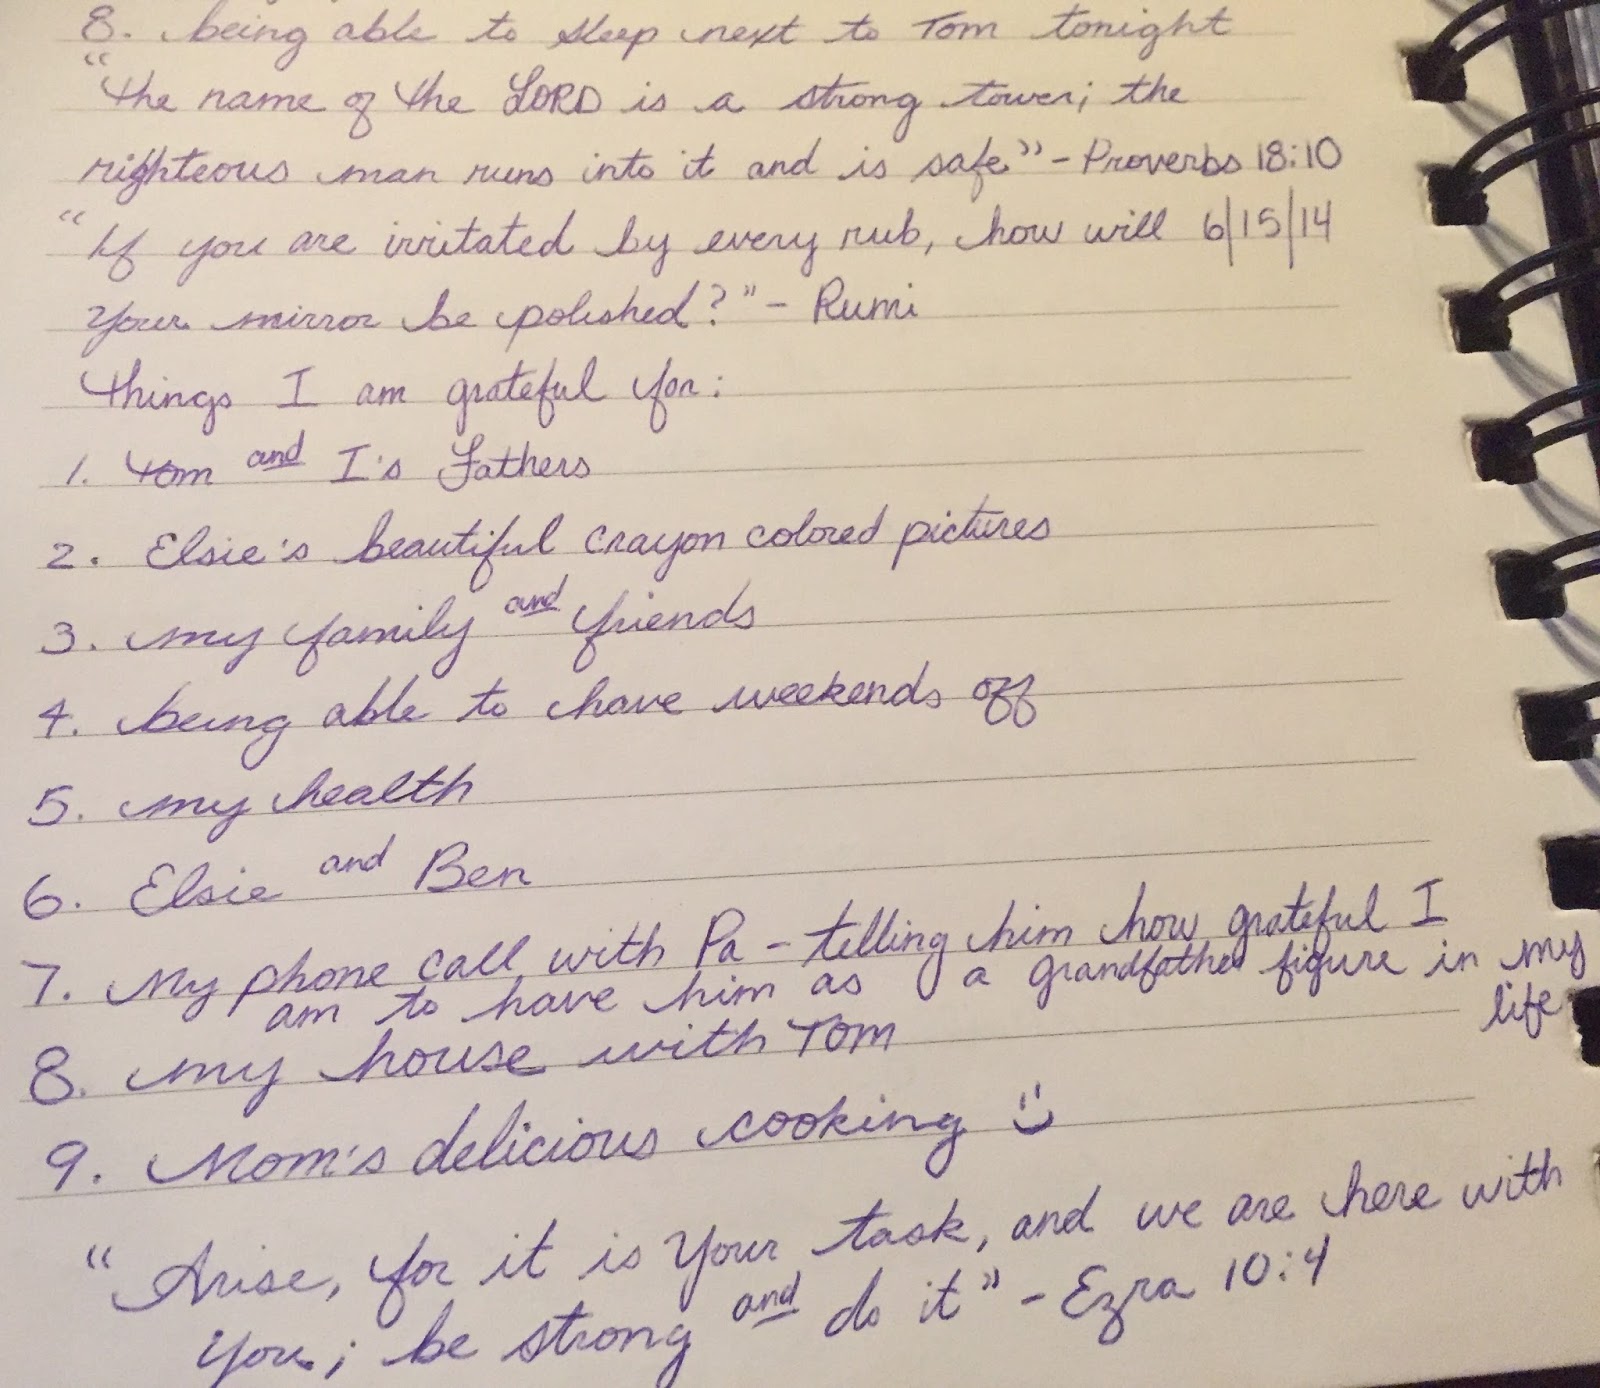 8. being able to sleep next to Tom tonight
"the name of the LORD is a strong tower; the
righteous man runs into it and is safe" - Proverbs 18:10
"If you are irritated by every rub, how will 6/15/14
your mirror be polished?" - Rumi
things I am grateful for:
1. Tom and I's Fathers
2. Elsie's beautiful crayon colored pictures
3. my family and friends
4. being able to have weekends off
5. my health
6. Elsie and Ben
7. My phone call with Pa - telling him how grateful I
am to have him as a grandfather figure in my
life
8. my house with Tom
9. Mom's delicious cooking :)
"Arise, for it is Your task, and we are here with
you; be strong and do it" - Ezra 10:4